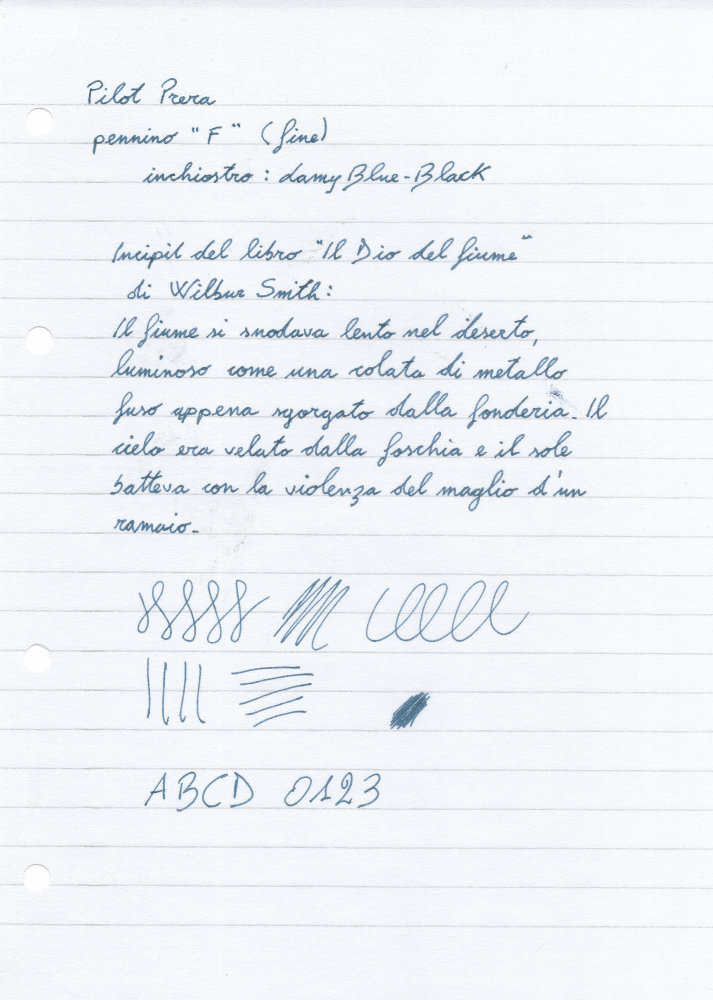 Pilot Prera
pennino "F" (fine)
inchiostro : Lamy Blue-Black
Incipit del libro "Il Dio del fiume"
di Wilbur Smith:
Il fiume si snodava lento nel deserto,
luminoso come una colata di metallo
fuso appena sgorgato dalla fonderia. Il
cielo era velato dalla foschia e il sole
batteva con la violenza del maglio d'un
ramaio.
ABCD 0123